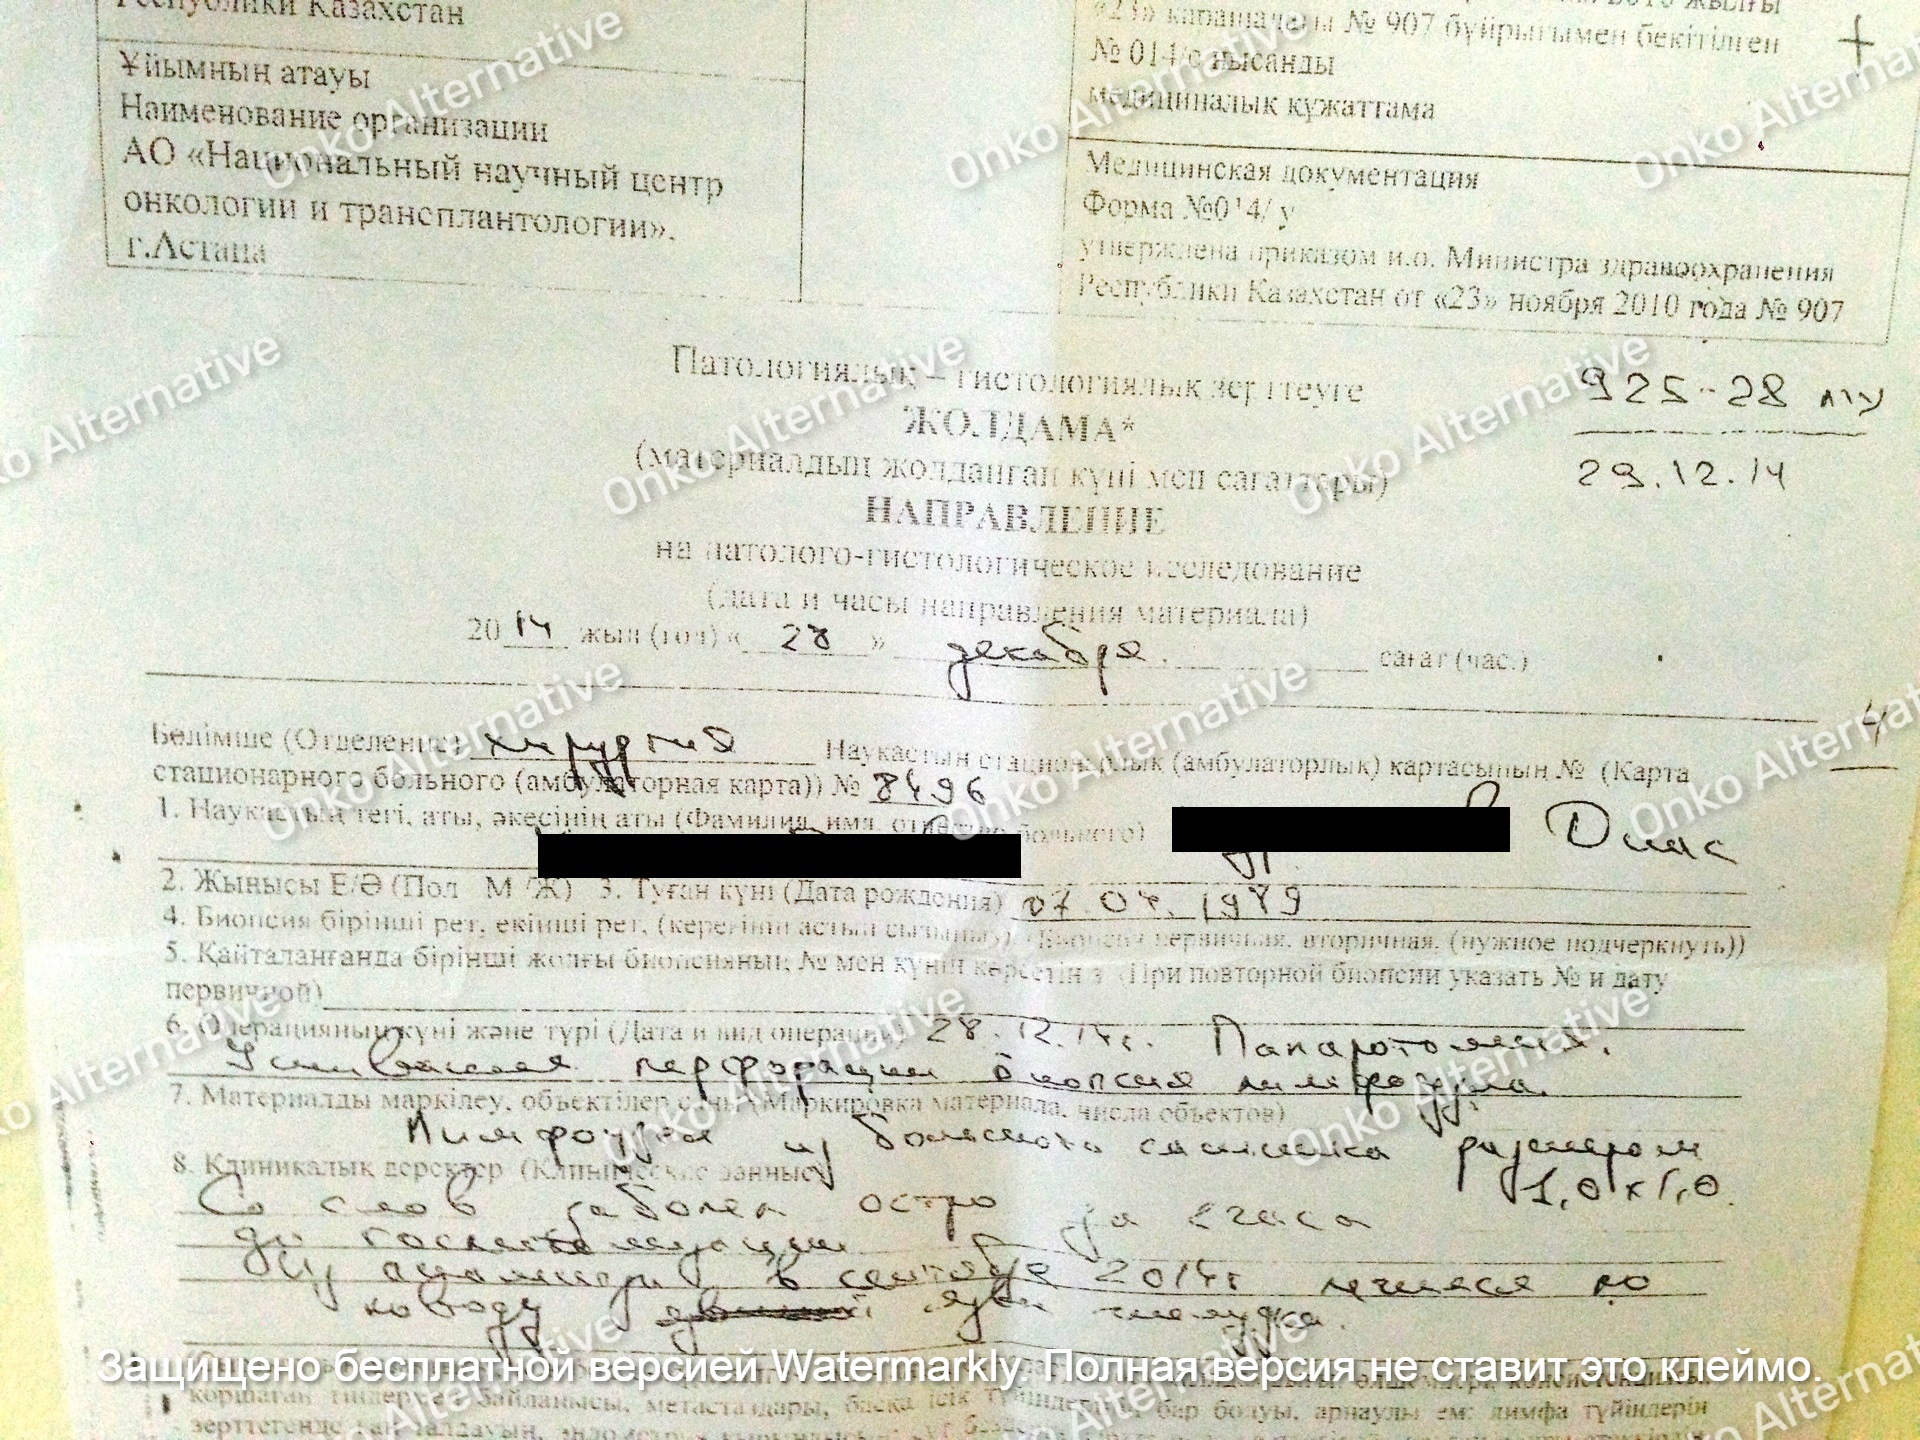 Республики Казахстан
Ұйымның атауы
Наименование организации
АО «Национальный научный центр
онкологии и трансплантологии».
г.Астана
жылғы
«23» қарашадағы № 907 бұйрығымен бекітілген
№ 014/с нысанды
медициналық құжаттама
Медицинская документация
Форма №014/ у
утверждена приказом и.о. Министра здравоохранения
Республики Казахстан от «23» ноября 2010 года № 907
Патологиялық – гистологиялық зерттеуге
ЖОЛДАМА*
(материалдың жолданған күні мен сағаттары)
НАПРАВЛЕНИЕ
на патолого-гистологическое исследование
(дата и часы направления материала)
925-28
29.12.14
2014 жыл (год) « 28 » декабря. сағат (час.)
4
Бөлімше (Отделение) хирургия Науқастың стационарлық (амбулаторлық) картасының № (Карта
стационарного больного (амбулаторная карта)) № 8496
1. Науқастың тегі, аты, әкесінің аты (Фамилия, имя, отчество больного) Диас
2. Жынысы Е/Ә (Пол М /Ж) 3. Туған күні (Дата рождения)
4. Биопсия бірінші рет, екінші рет, (керегінің астын сызыңыз) (Биопсия первичная, вторичная, (нужное подчеркнуть))
5. Қайталанғанда бірінші жолғы биопсияның № мен күнін көрсетіңіз (При повторной биопсии указать № и дату
первичной)
6. Операцияның күні және түрі (Дата и вид операции) 28.12.14г. Лапаротомия.
Ушивание перфорации биопсия лимфоузла.
7. Материалды маркілеу, объектілер саны (Маркировка материала, числа объектов)
Лимфоузел из большого сальника размером
1,0х1,0.
8. Клиникалық деректер (Клинические данные)
Со слов заболел остро за 2 часа
до госпитализации
Из анамнеза в сентябре 2014г лечился по
поводу язвы желудка.
Onko Alternative
Защищено бесплатной версией Watermarkly. Полная версия не ставит это клеймо.
қоршаған тіндермен байланысы, метастаздары, басқа ісік түйіндерінің бар болуы, арнаулы ем: лимфа түйіндерін